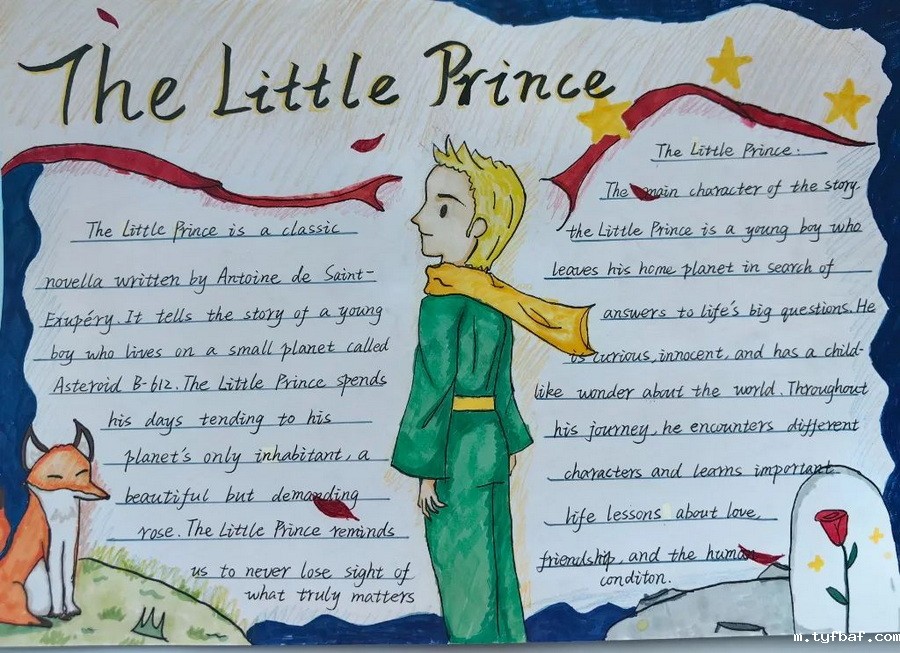 The Little Prince
The Little Prince is a classic
novella written by Antoine de Saint-
Exupéry. It tells the story of a young
boy who lives on a small planet called
Asteroid B-612. The Little Prince spends
his days tending to his
planet's only inhabitant, a
beautiful but demanding
rose. The Little Prince reminds
us to never lose sight of
what truly matters
The Little Prince.
The main character of the story.
the Little Prince is a young boy who
leaves his home planet in search of
answers to life's big questions. He
is curious, innocent, and has a child-
like wonder about the world. Throughout
his journey, he encounters different
characters and learns important
life lessons about love,
friendship, and the human
conditon.
m.tyfbaf.com